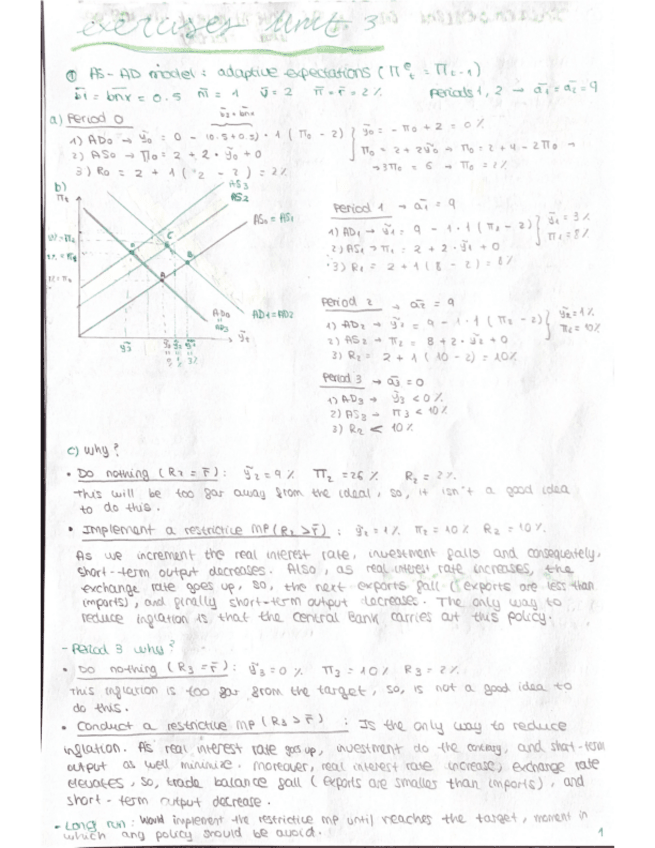 exercises Unit. 3
① AS-AD model: adaptive expectations (Πᵉt = Πt-1)
b̄1 = b̄nx = 0.5 m̄ = 1 v̄ = 2 π̄ = r̄ = 2% Periods 1, 2 → ā1 = ā2 = 9
b̄1+b̄nx
a) Period 0
1) AD0 → ỹ0 = 0 - (0.5+0.5)·1(Π0 - 2) } ỹ0 = -Π0 + 2 = 0%
2) AS0 → Π0 = 2 + 2·ỹ0 + 0 Π0 = 2 + 2ỹ0 → Π0 = 2 + 4 - 2Π0 →
3) R0 = 2 + 1(2 - 2) = 2% → 3Π0 = 6 → Π0 = 2%
b)
Πt
AS3
AS2
AS0 = AS1
C
B
A
AD0
AD3
AD1 = AD2
ỹt
ỹ3 ỹ0 ỹ2 ỹ1
0% 1% 3%
Period 1 → ā1 = 9
1) AD1 → ỹ1 = 9 - 1·1(Π1 - 2) } ỹ1 = 3%
2) AS1 → Π1 = 2 + 2·ỹ1 + 0 Π1 = 8%
3) R1 = 2 + 1(8 - 2) = 8%
Period 2 → ā2 = 9
1) AD2 → ỹ2 = 9 - 1·1(Π2 - 2) } ỹ2 = 1%
2) AS2 → Π2 = 8 + 2·ỹ2 + 0 Π2 = 10%
3) R2 = 2 + 1(10 - 2) = 10%
Period 3 → ā3 = 0
1) AD3 → ỹ3 < 0%
2) AS3 → Π3 < 10%
3) R3 < 10%
c) Why?
• Do nothing (R2 = r̄): ỹ2 = 9% Π2 = 26% R2 = 2%.
This will be too far away from the ideal, so, it isn't a good idea
to do this.
• Implement a restrictive MP (R2 > r̄): ỹ2 = 1% Π2 = 10% R2 = 10%.
As we increment the real interest rate, investment falls and consequently,
short-term output decreases. Also, as real interest rate increases, the
exchange rate goes up, so, the next exports fall (exports are less than
imports), and finally short-term output decreases. The only way to
reduce inflation is that the Central Bank carries out this policy.
- Period 3 why?
• Do nothing (R3 = r̄): ỹ3 = 0% Π3 = 10% R3 = 2%.
This inflation is too far from the target, so, is not a good idea to
do this.
• Conduct a restrictive MP (R3 > r̄): Is the only way to reduce
inflation. As real interest rate goes up, investment do the contrary, and short-term
output as well minimize. Moreover, real interest rate increase, exchange rate
elevates, so, trade balance fall (exports are smaller than imports), and
short-term output decrease.
- Long run: Would implement the restrictive MP until reaches the target, moment in
which any policy should be avoid.
1